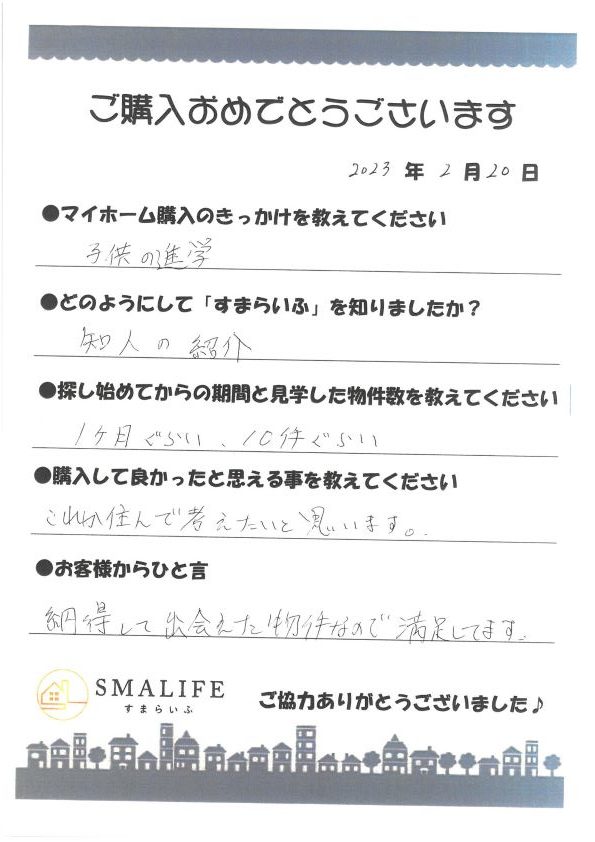 ご購入おめでとうございます
2023 年 2 月 20 日
●マイホーム購入のきっかけを教えてください
子供の進学
●どのようにして「すまらいふ」を知りましたか？
知人の紹介
●探し始めてからの期間と見学した物件数を教えてください
1ヶ月ぐらい、10件ぐらい
●購入して良かったと思える事を教えてください
これか住んで考えたいと思います。
●お客様からひと言
納得して出会えた物件なので満足してます。
SMALIFE
すまらいふ
ご協力ありがとうございました♪